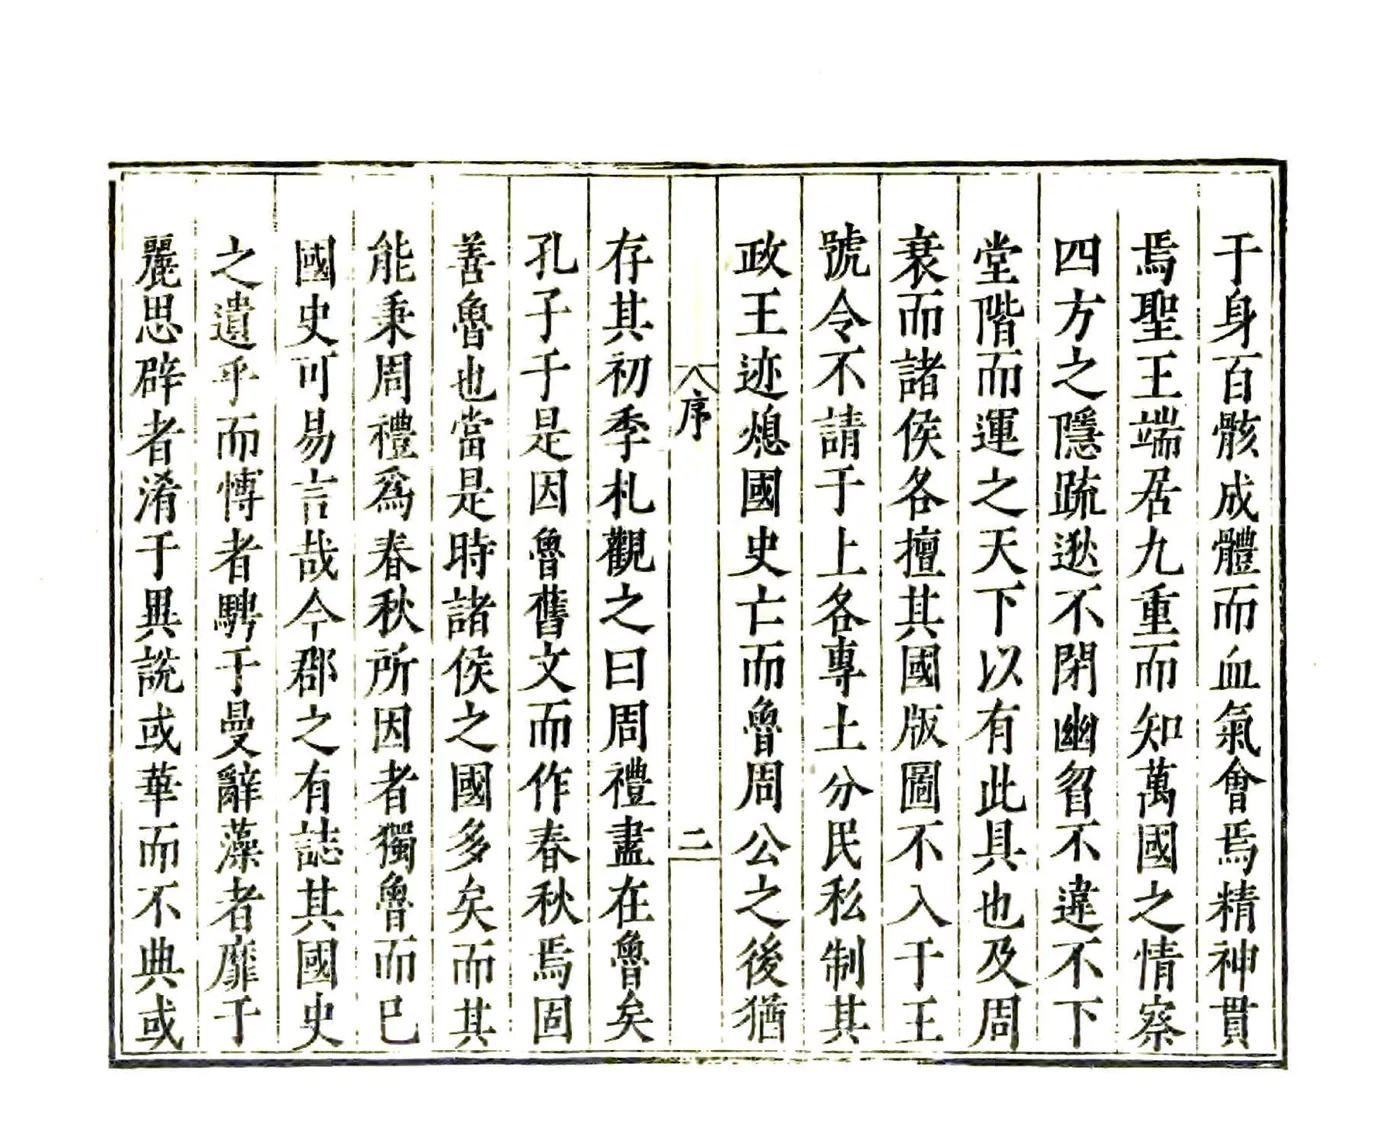 于身百骸成體而血氣會焉精神貫
焉聖王端居九重而知萬國之情察
四方之隱疏逖不閉幽窅不違不下
堂階而運之天下以有此具也及周
衰而諸侯各擅其國版圖不入于王
號令不請于上各專土分民私制其
政王迹熄國史亡而魯周公之後猶
序
二
存其初季札觀之曰周禮盡在魯矣
孔子于是因魯舊文而作春秋焉固
善魯也當是時諸侯之國多矣而其
能秉周禮爲春秋所因者獨魯而已
國史可易言哉今郡之有誌其國史
之遺乎而慱者騁于曼辭藻者靡于
麗思辟者淆于異說或華而不典或